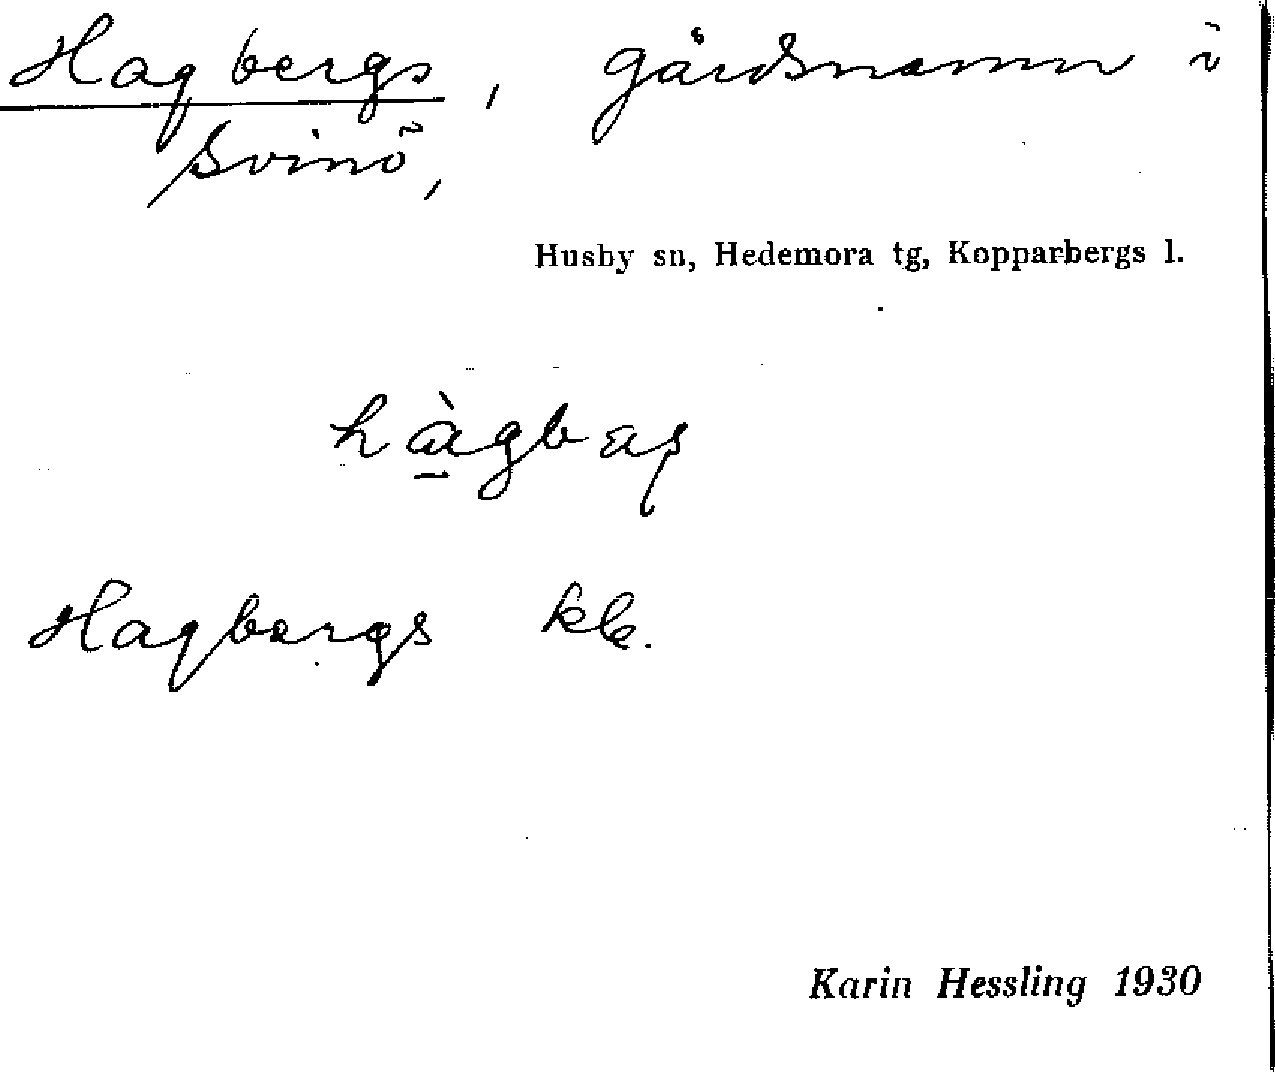 Hagbergs, gårdsnamn i
Svinö,
Husby sn, Hedemora tg, Kopparbergs l.
Hagbergs kb.
Karin Hessling 1930